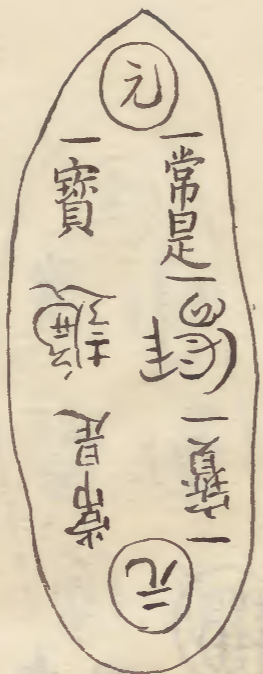 元
常是
寶
寶
常是
元